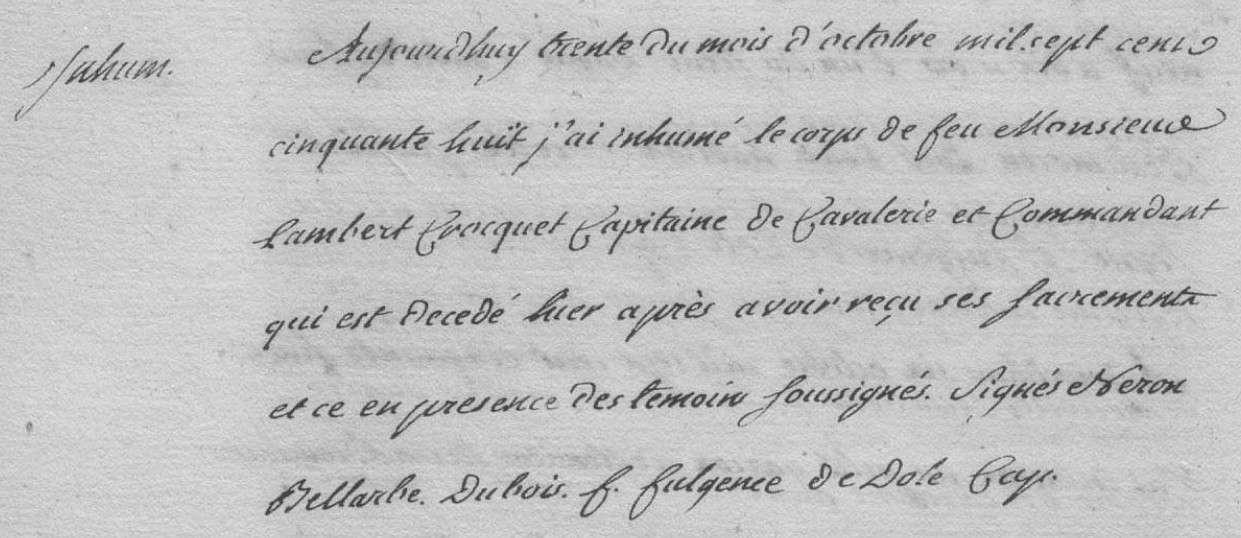 Inhum.
Aujourdhuy trente du mois d'octobre mil sept cens
cinquante huit j'ai inhumé le corps de feu Monsieur
Lambert Crocquet Capitaine de Cavalerie et Commandant
qui est decedé hier après avoir reçu ses sacrements
et ce en presence des temoins soussignés. Signés Neron
Bellarbe. Dubois. f. fulgence de Dole Cap.